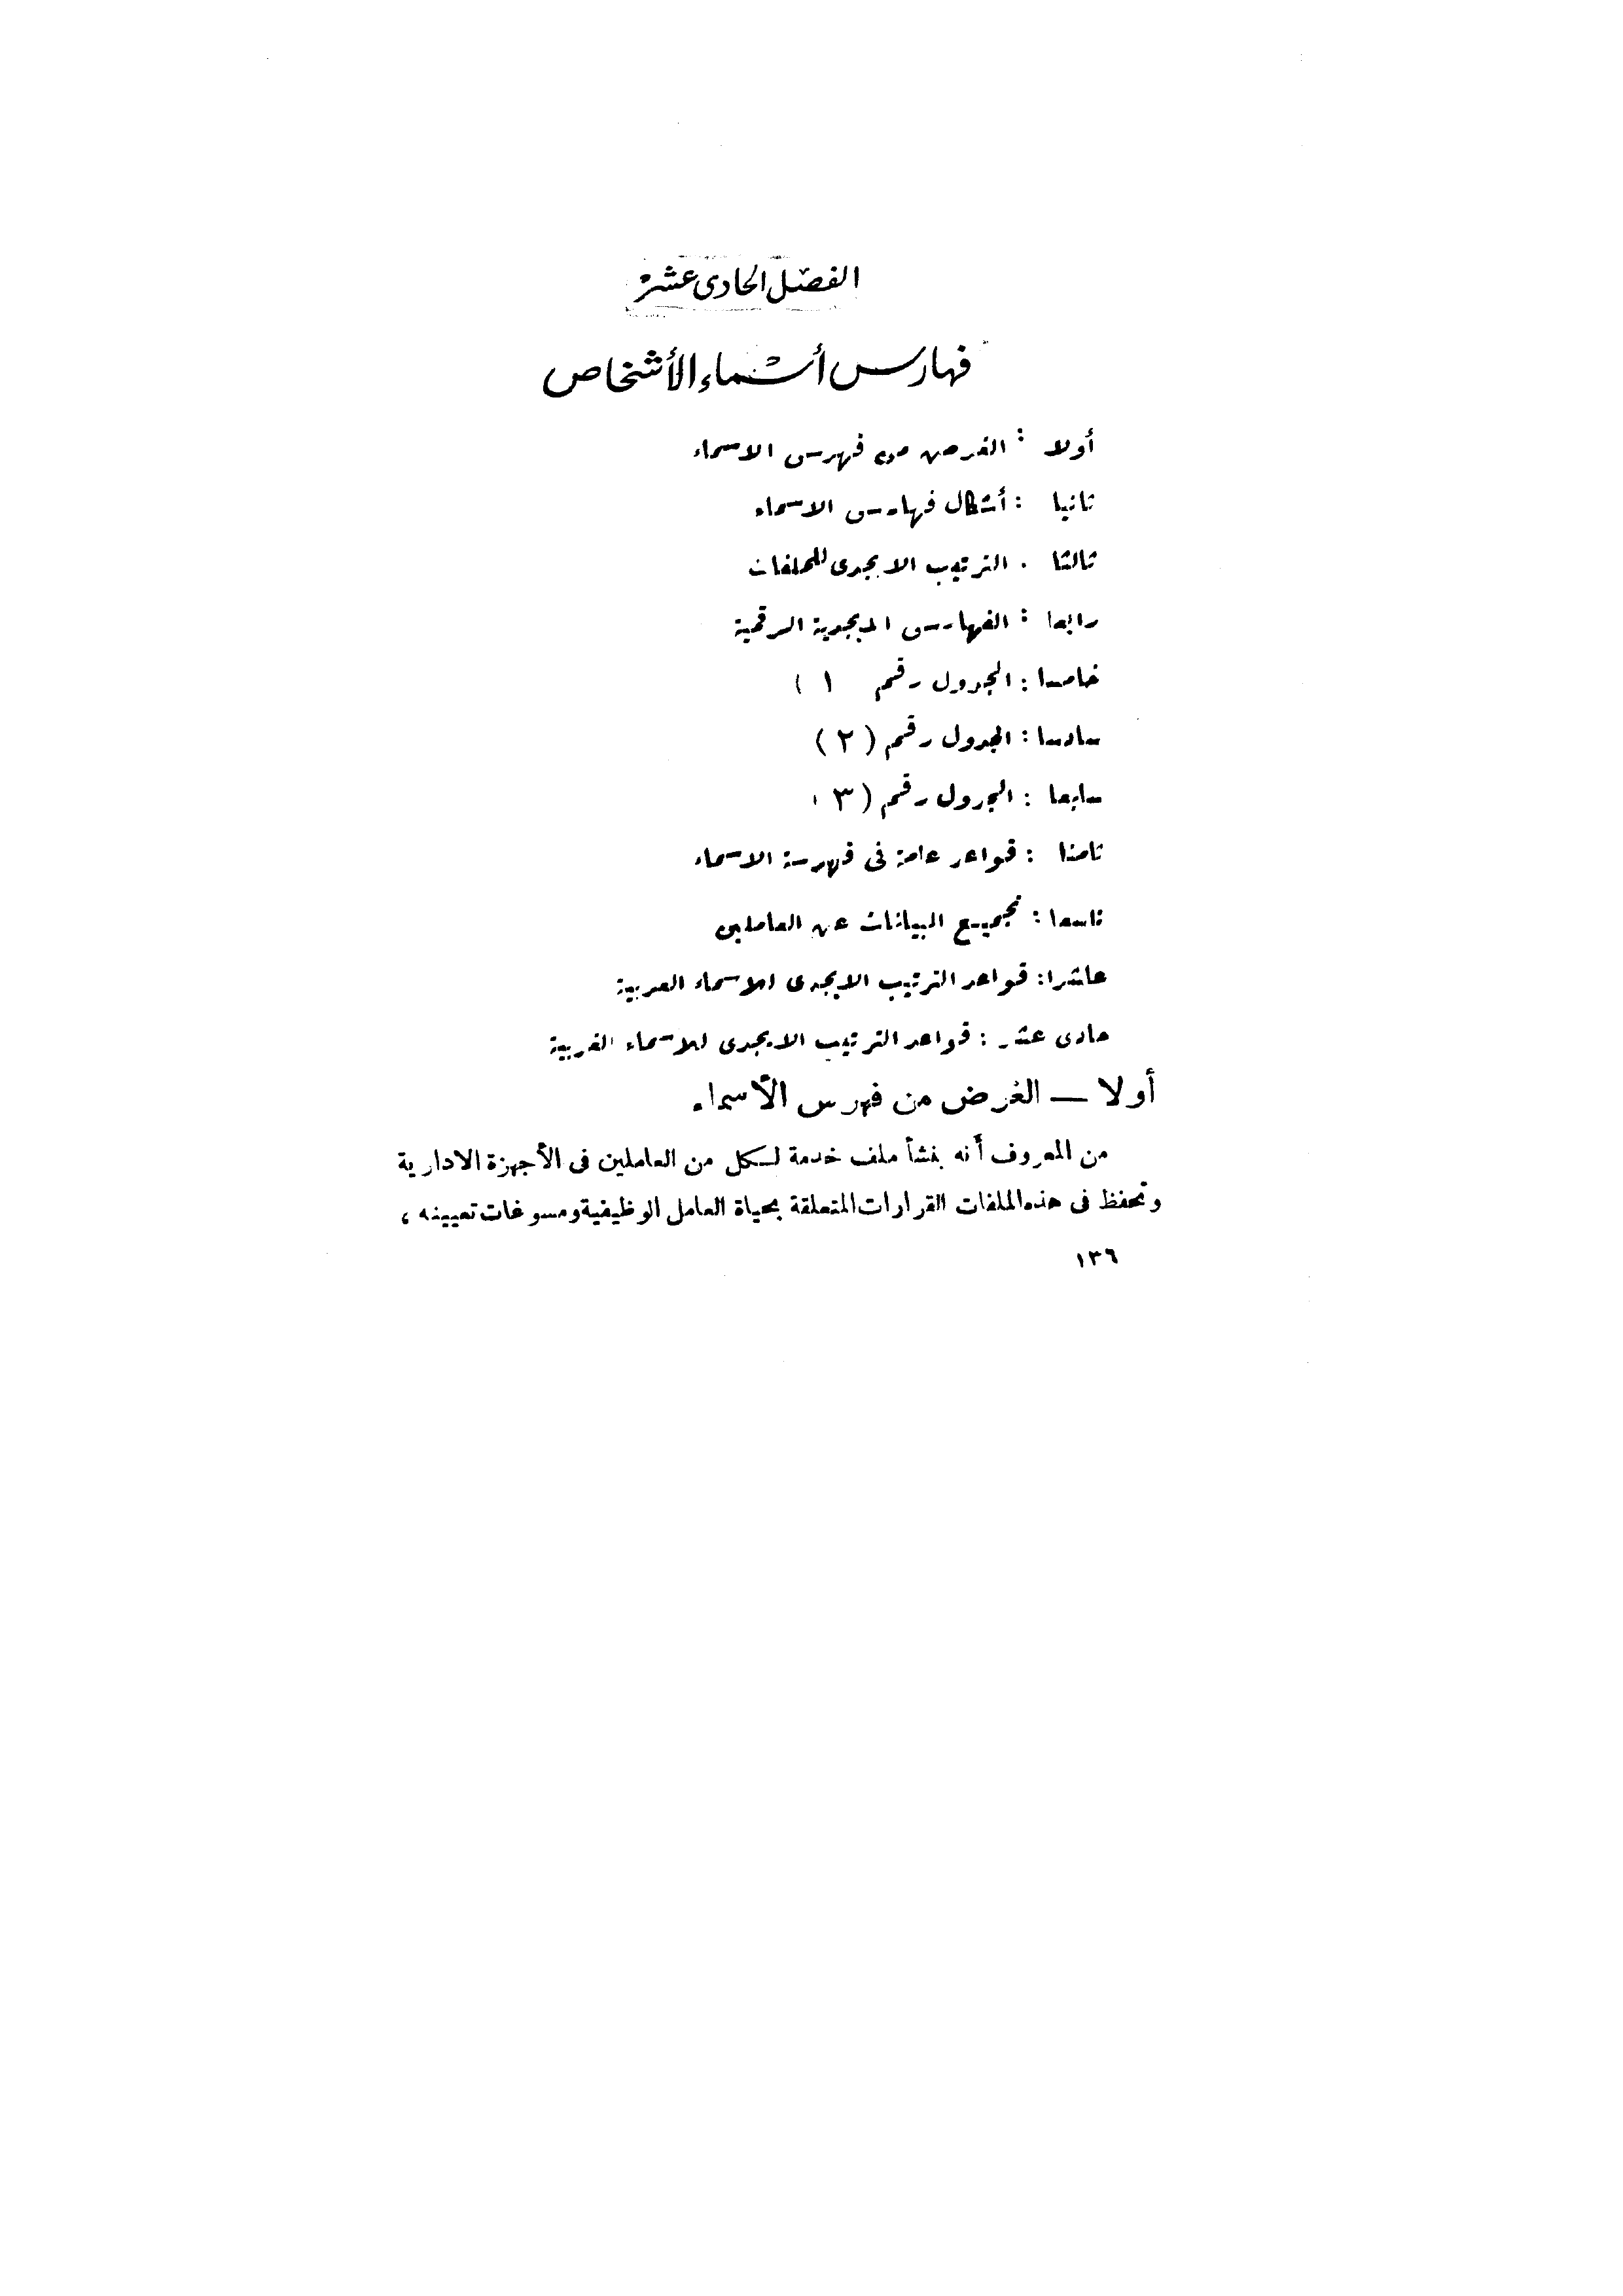 الفصل الحادى عشر
فهارس أسماء الأشخاص
أولا : الغرض من فهرس الاسماء
ثانيا : أشكال فهارس الاسماء
ثالثا . الترتيب الابجدى للملفات
رابعا : الفهارس الابجدية الرقمية
خامسا : الجدول رقم ١ )
سادسا : الجدول رقم ( ٢ )
سابعا : الجدول رقم ( ٣ )
ثامنا : قواعد عامة فى فهرسة الاسماء
تاسعا : تجميع البيانات عن العاملين
عاشرا : قواعد الترتيب الابجدى للاسماء العربية
حادى عشر : قواعد الترتيب الابجدى للاسماء الغربية
أولا — الغرض من فهرس الأسماء
من المعروف أنه ينشأ ملف خدمة لكل من العاملين فى الأجهزة الادارية
وتحفظ فى هذه الملفات القرارات المتعلقة بحياة العامل الوظيفية ومسوغات تعيينه ،
١٣٦